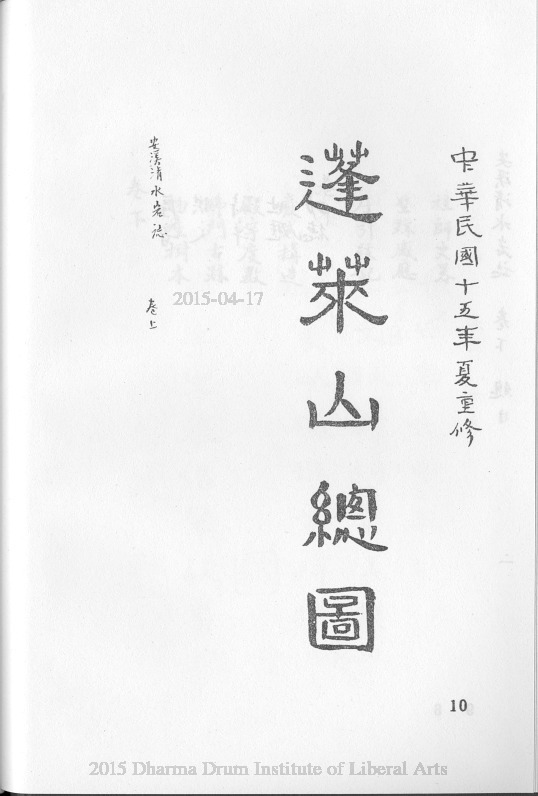 中華民國十五年夏重修
蓬萊山總圖
安溪清水岩志 卷上
2015-04-17
10
2015 Dharma Drum Institute of Liberal Arts